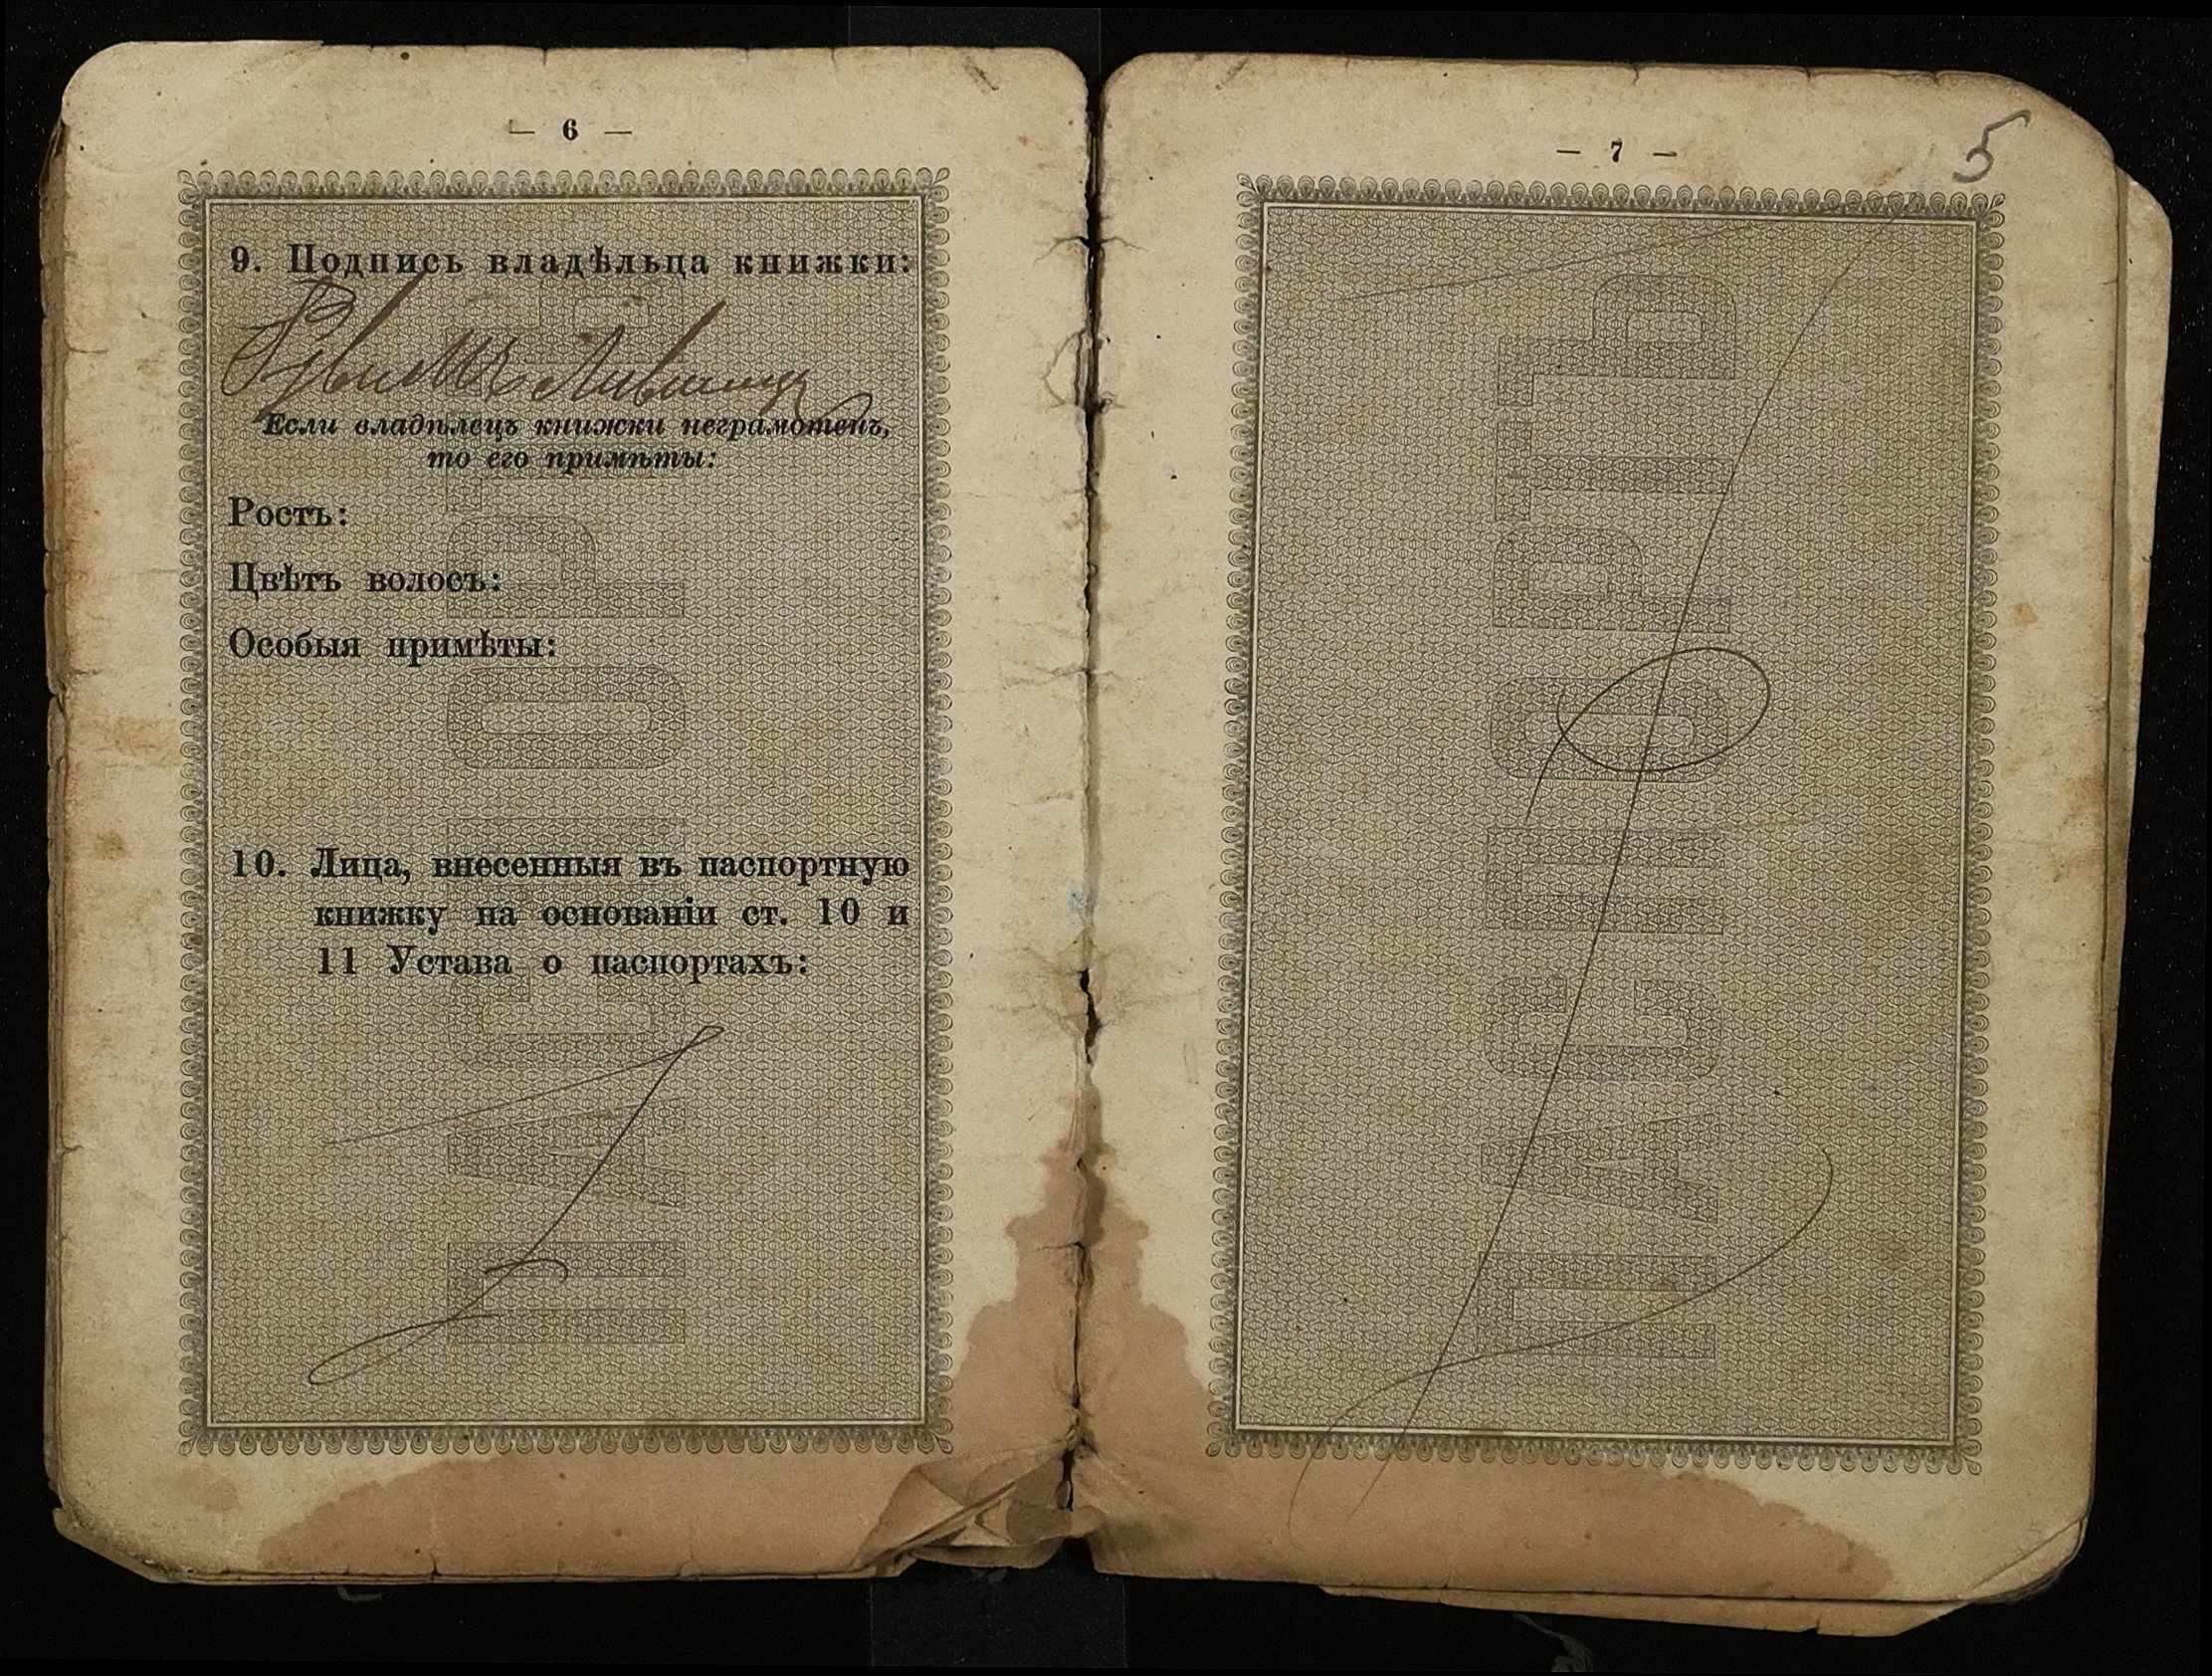 — 6 —
9. Подпись владѣльца книжки:
Рувимъ Лившиц
Если владѣлецъ книжки неграмотенъ,
то его примѣты:
Ростъ:
Цвѣтъ волосъ:
Особыя примѣты:
10. Лица, внесенныя въ паспортную
книжку на основаніи ст. 10 и
11 Устава о паспортахъ:
ПАСПОРТЪ
— 7 —
5
ПАСПОРТЪ